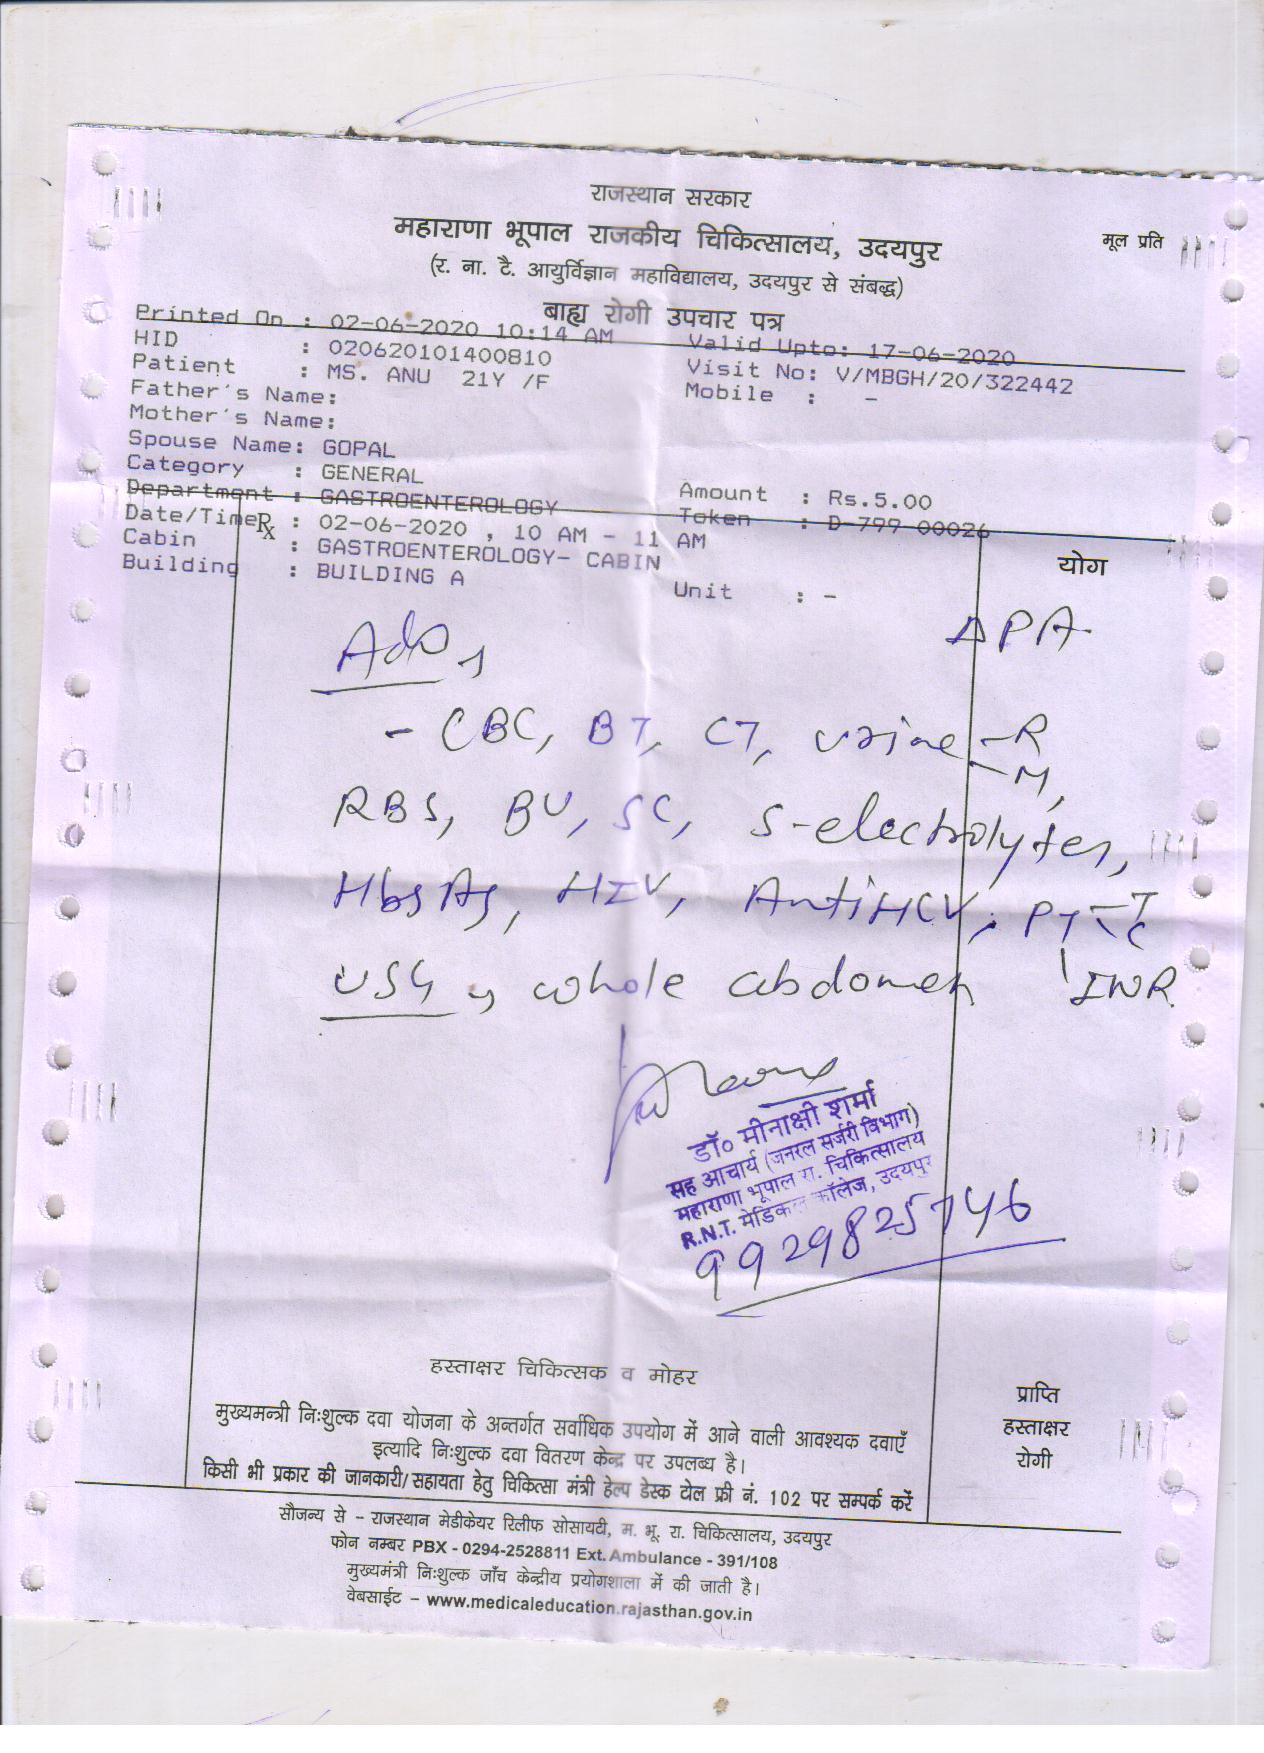 राजस्थान सरकार
महाराणा भूपाल राजकीय चिकित्सालय, उदयपुर
मूल प्रति
(र. ना. टै. आयुर्विज्ञान महाविद्यालय, उदयपुर से संबद्ध)
बाह्य रोगी उपचार पत्र
Printed On : 02-06-2020 10:14 AM Valid Upto: 17-06-2020
HID : 020620101400810 Visit No: V/MBGH/20/322442
Patient : MS. ANU 21Y /F Mobile : -
Father's Name:
Mother's Name:
Spouse Name: GOPAL
Category : GENERAL Amount : Rs.5.00
Department : GASTROENTEROLOGY Token : D-799 00026
Date/Time : 02-06-2020 , 10 AM - 11 AM
Rx
Cabin : GASTROENTEROLOGY- CABIN
Building : BUILDING A Unit : -
योग
Adv
- CBC, BT, CT, urine -R
-M,
RBS, BU, SC, S-electrolytes,
HbsAg, HIV, AntiHCV, PT-TC
USG whole abdomen INR
डॉ० मीनाक्षी शर्मा
सह आचार्य (जनरल सर्जरी विभाग)
महाराणा भूपाल रा. चिकित्सालय
R.N.T. मेडिकल कॉलेज, उदयपुर
9929825746
हस्ताक्षर चिकित्सक व मोहर
मुख्यमन्त्री निःशुल्क दवा योजना के अन्तर्गत सर्वाधिक उपयोग में आने वाली आवश्यक दवाएँ
इत्यादि निःशुल्क दवा वितरण केन्द्र पर उपलब्ध है।
किसी भी प्रकार की जानकारी/सहायता हेतु चिकित्सा मंत्री हेल्प डेस्क टोल फ्री नं. 102 पर सम्पर्क करें
प्राप्ति
हस्ताक्षर
रोगी
सौजन्य से – राजस्थान मेडीकेयर रिलीफ सोसायटी, म. भू. रा. चिकित्सालय, उदयपुर
फोन नम्बर PBX - 0294-2528811 Ext. Ambulance - 391/108
मुख्यमंत्री निःशुल्क जाँच केन्द्रीय प्रयोगशाला में की जाती है।
वेबसाईट – www.medicaleducation.rajasthan.gov.in